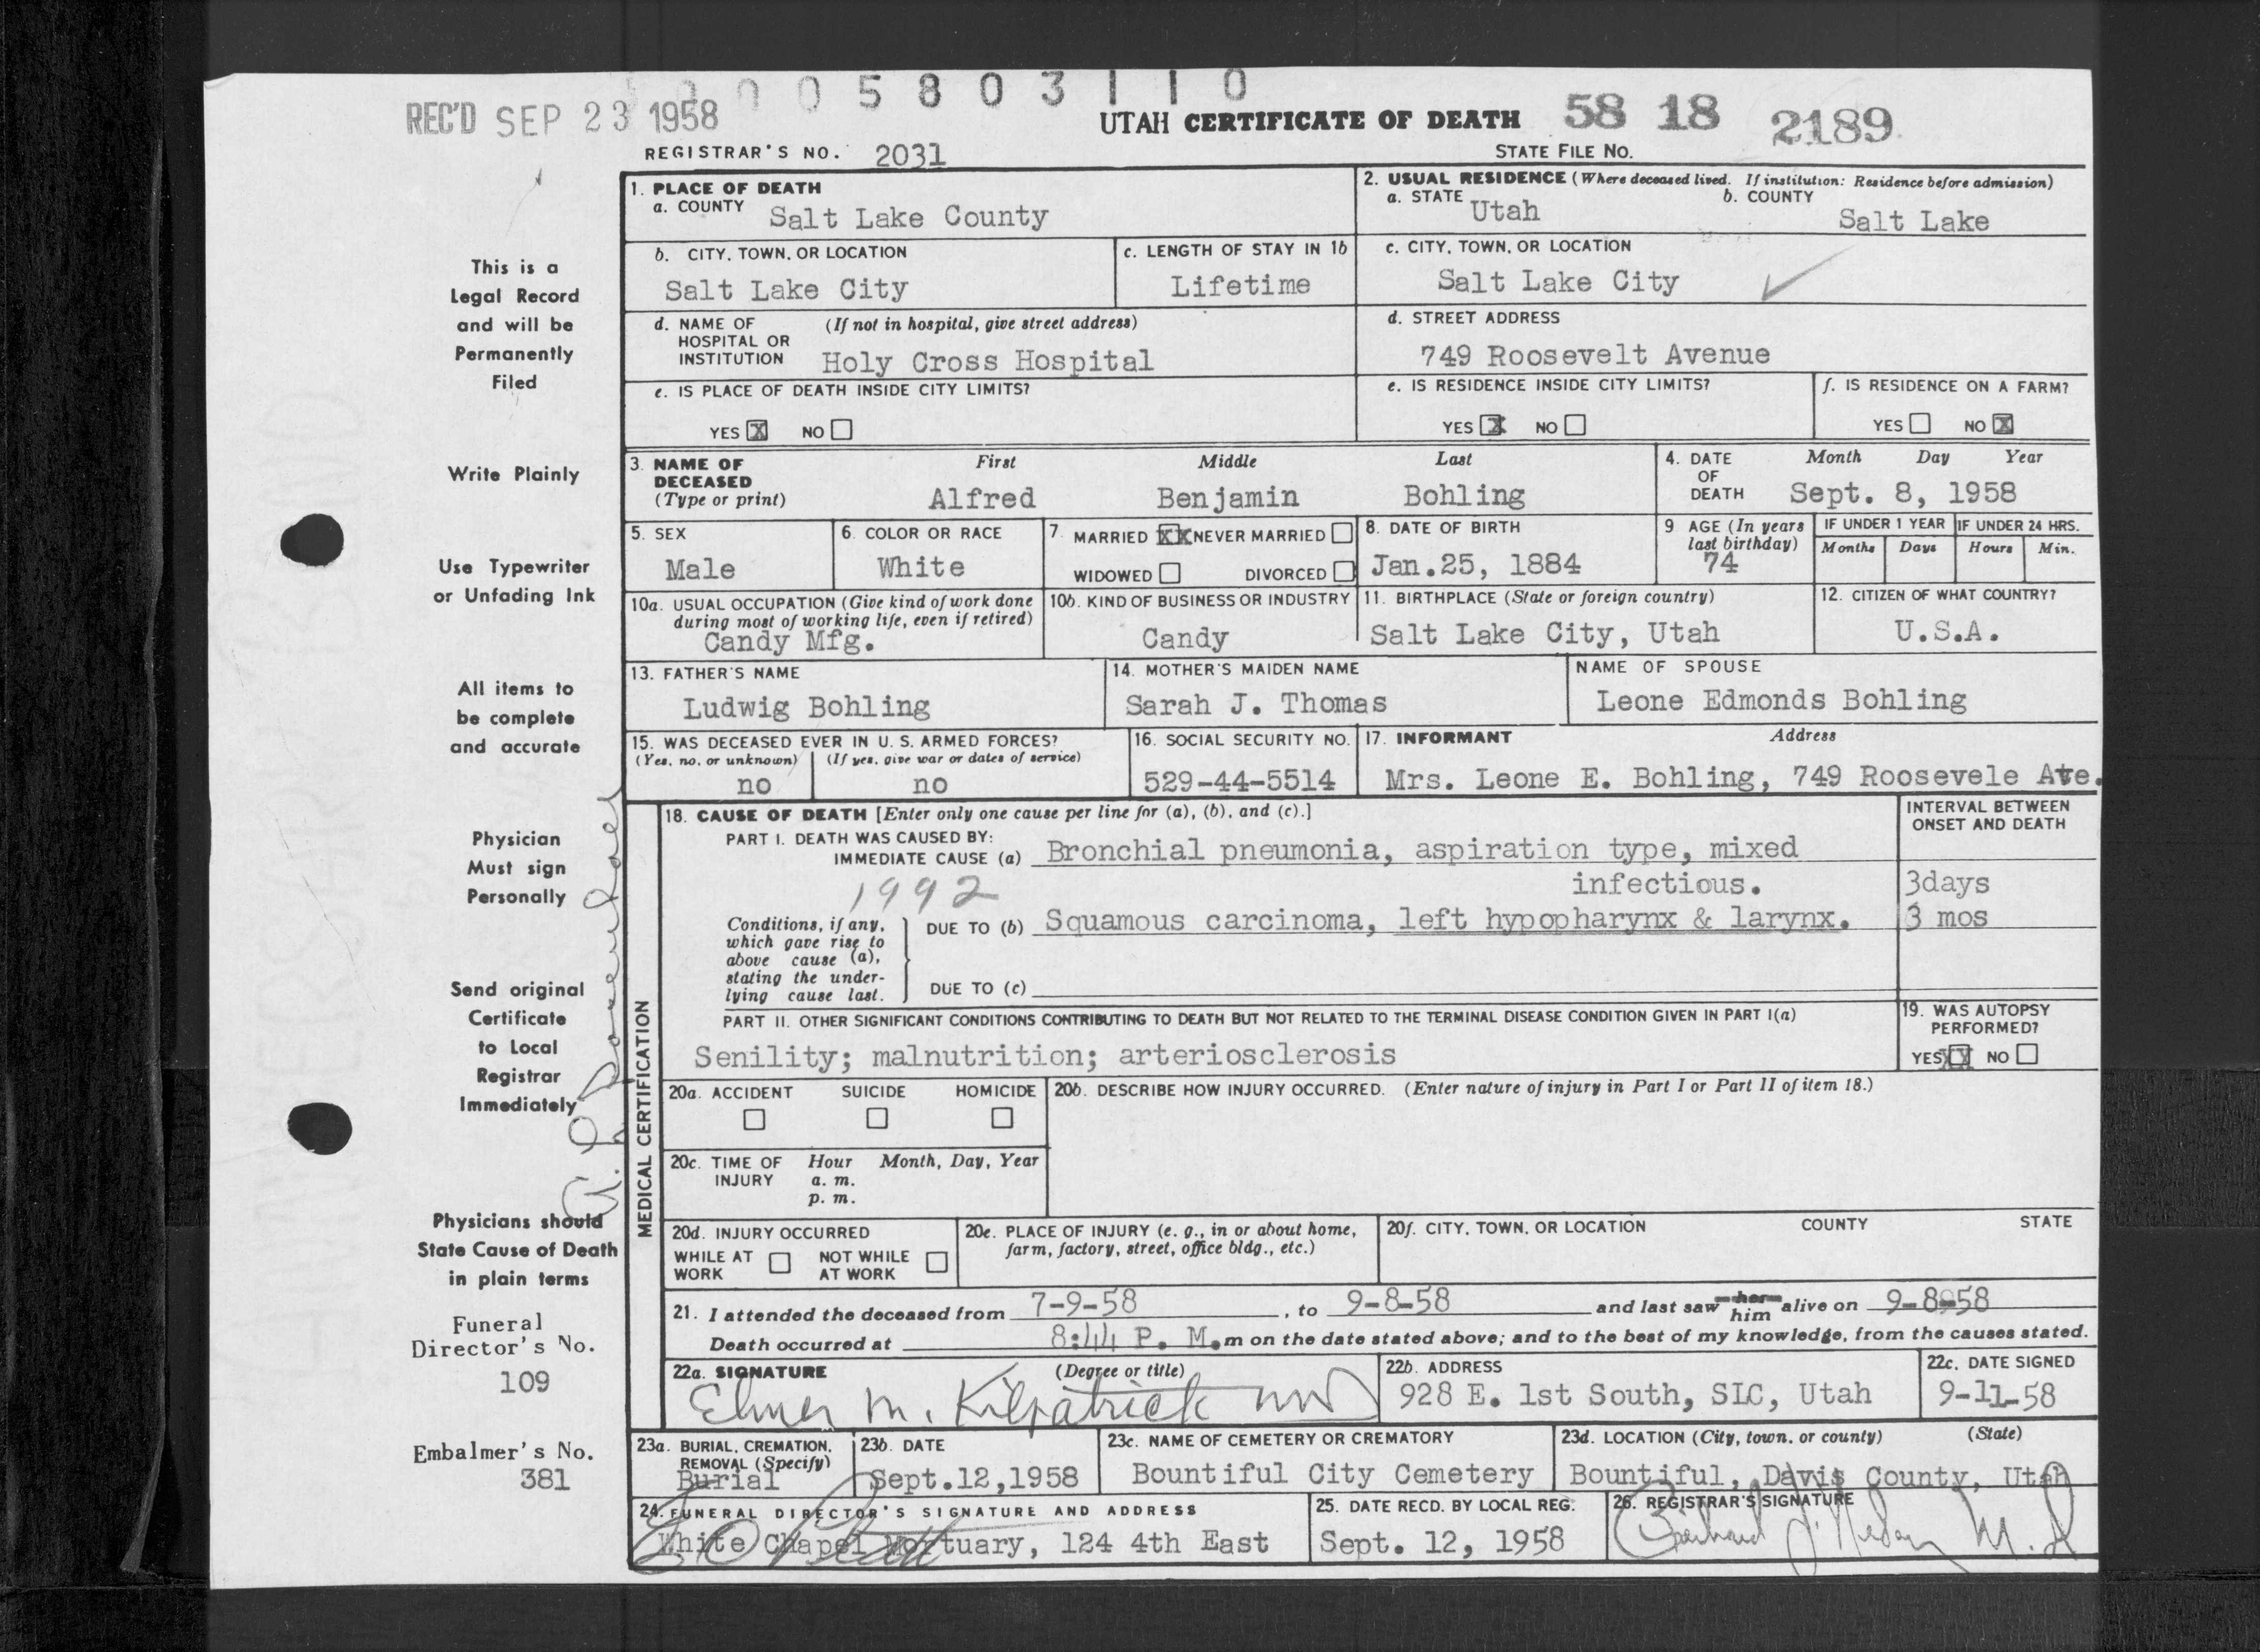 0 0 0 5 8 0 3 1 1 0
REC'D SEP 23 1958
UTAH CERTIFICATE OF DEATH 58 18 2189
REGISTRAR'S NO. 2031
STATE FILE NO.
This is a
Legal Record
and will be
Permanently
Filed
Write Plainly
Use Typewriter
or Unfading Ink
All items to
be complete
and accurate
Physician
Must sign
Personally
Send original
Certificate
to Local
Registrar
Immediately
Physicians should
State Cause of Death
in plain terms
Funeral
Director's No.
109
Embalmer's No.
381
1. PLACE OF DEATH
a. COUNTY Salt Lake County
2. USUAL RESIDENCE (Where deceased lived. If institution: Residence before admission)
a. STATE Utah b. COUNTY Salt Lake
b. CITY, TOWN, OR LOCATION
Salt Lake City
c. LENGTH OF STAY IN 1b
Lifetime
c. CITY, TOWN, OR LOCATION
Salt Lake City
d. NAME OF (If not in hospital, give street address)
HOSPITAL OR
INSTITUTION Holy Cross Hospital
d. STREET ADDRESS
749 Roosevelt Avenue
e. IS PLACE OF DEATH INSIDE CITY LIMITS?
YES X NO
e. IS RESIDENCE INSIDE CITY LIMITS?
YES X NO
f. IS RESIDENCE ON A FARM?
YES NO X
3. NAME OF First Middle Last
DECEASED
(Type or print) Alfred Benjamin Bohling
4. DATE Month Day Year
OF
DEATH Sept. 8, 1958
5. SEX
Male
6. COLOR OR RACE
White
7. MARRIED XX NEVER MARRIED
WIDOWED DIVORCED
8. DATE OF BIRTH
Jan.25, 1884
9 AGE (In years
last birthday)
74
IF UNDER 1 YEAR
Months Days
IF UNDER 24 HRS.
Hours Min.
10a. USUAL OCCUPATION (Give kind of work done
during most of working life, even if retired)
Candy Mfg.
10b. KIND OF BUSINESS OR INDUSTRY
Candy
11. BIRTHPLACE (State or foreign country)
Salt Lake City, Utah
12. CITIZEN OF WHAT COUNTRY?
U.S.A.
13. FATHER'S NAME
Ludwig Bohling
14. MOTHER'S MAIDEN NAME
Sarah J. Thomas
NAME OF SPOUSE
Leone Edmonds Bohling
15. WAS DECEASED EVER IN U. S. ARMED FORCES?
(Yes, no, or unknown) (If yes, give war or dates of service)
no no
16. SOCIAL SECURITY NO.
529-44-5514
17. INFORMANT Address
Mrs. Leone E. Bohling, 749 Roosevele Ave.
MEDICAL CERTIFICATION
18. CAUSE OF DEATH [Enter only one cause per line for (a), (b), and (c).]
INTERVAL BETWEEN
ONSET AND DEATH
PART I. DEATH WAS CAUSED BY:
IMMEDIATE CAUSE (a) Bronchial pneumonia, aspiration type, mixed
1992 infectious. 3days
Conditions, if any,
which gave rise to
above cause (a),
stating the under-
lying cause last.
DUE TO (b) Squamous carcinoma, left hypopharynx & larynx. 3 mos
DUE TO (c)
PART II. OTHER SIGNIFICANT CONDITIONS CONTRIBUTING TO DEATH BUT NOT RELATED TO THE TERMINAL DISEASE CONDITION GIVEN IN PART I(a)
Senility; malnutrition; arteriosclerosis
19. WAS AUTOPSY
PERFORMED?
YES XX NO
20a. ACCIDENT SUICIDE HOMICIDE
20b. DESCRIBE HOW INJURY OCCURRED. (Enter nature of injury in Part I or Part II of item 18.)
20c. TIME OF Hour Month, Day, Year
INJURY a. m.
p. m.
20d. INJURY OCCURRED
WHILE AT NOT WHILE
WORK AT WORK
20e. PLACE OF INJURY (e. g., in or about home,
farm, factory, street, office bldg., etc.)
20f. CITY, TOWN, OR LOCATION COUNTY STATE
21. I attended the deceased from 7-9-58, to 9-8-58 and last saw her him alive on 9-8-58
Death occurred at 8:44 P. M.m on the date stated above; and to the best of my knowledge, from the causes stated.
22a. SIGNATURE (Degree or title)
Elmer M. Kilpatrick MD
22b. ADDRESS
928 E. 1st South, SLC, Utah
22c. DATE SIGNED
9-11-58
23a. BURIAL, CREMATION,
REMOVAL (Specify)
Burial
23b. DATE
Sept.12,1958
23c. NAME OF CEMETERY OR CREMATORY
Bountiful City Cemetery
23d. LOCATION (City, town, or county) (State)
Bountiful, Davis County, Utah
24. FUNERAL DIRECTOR'S SIGNATURE AND ADDRESS
White Chapel Mortuary, 124 4th East
25. DATE RECD. BY LOCAL REG.
Sept. 12, 1958
26. REGISTRAR'S SIGNATURE
M.D